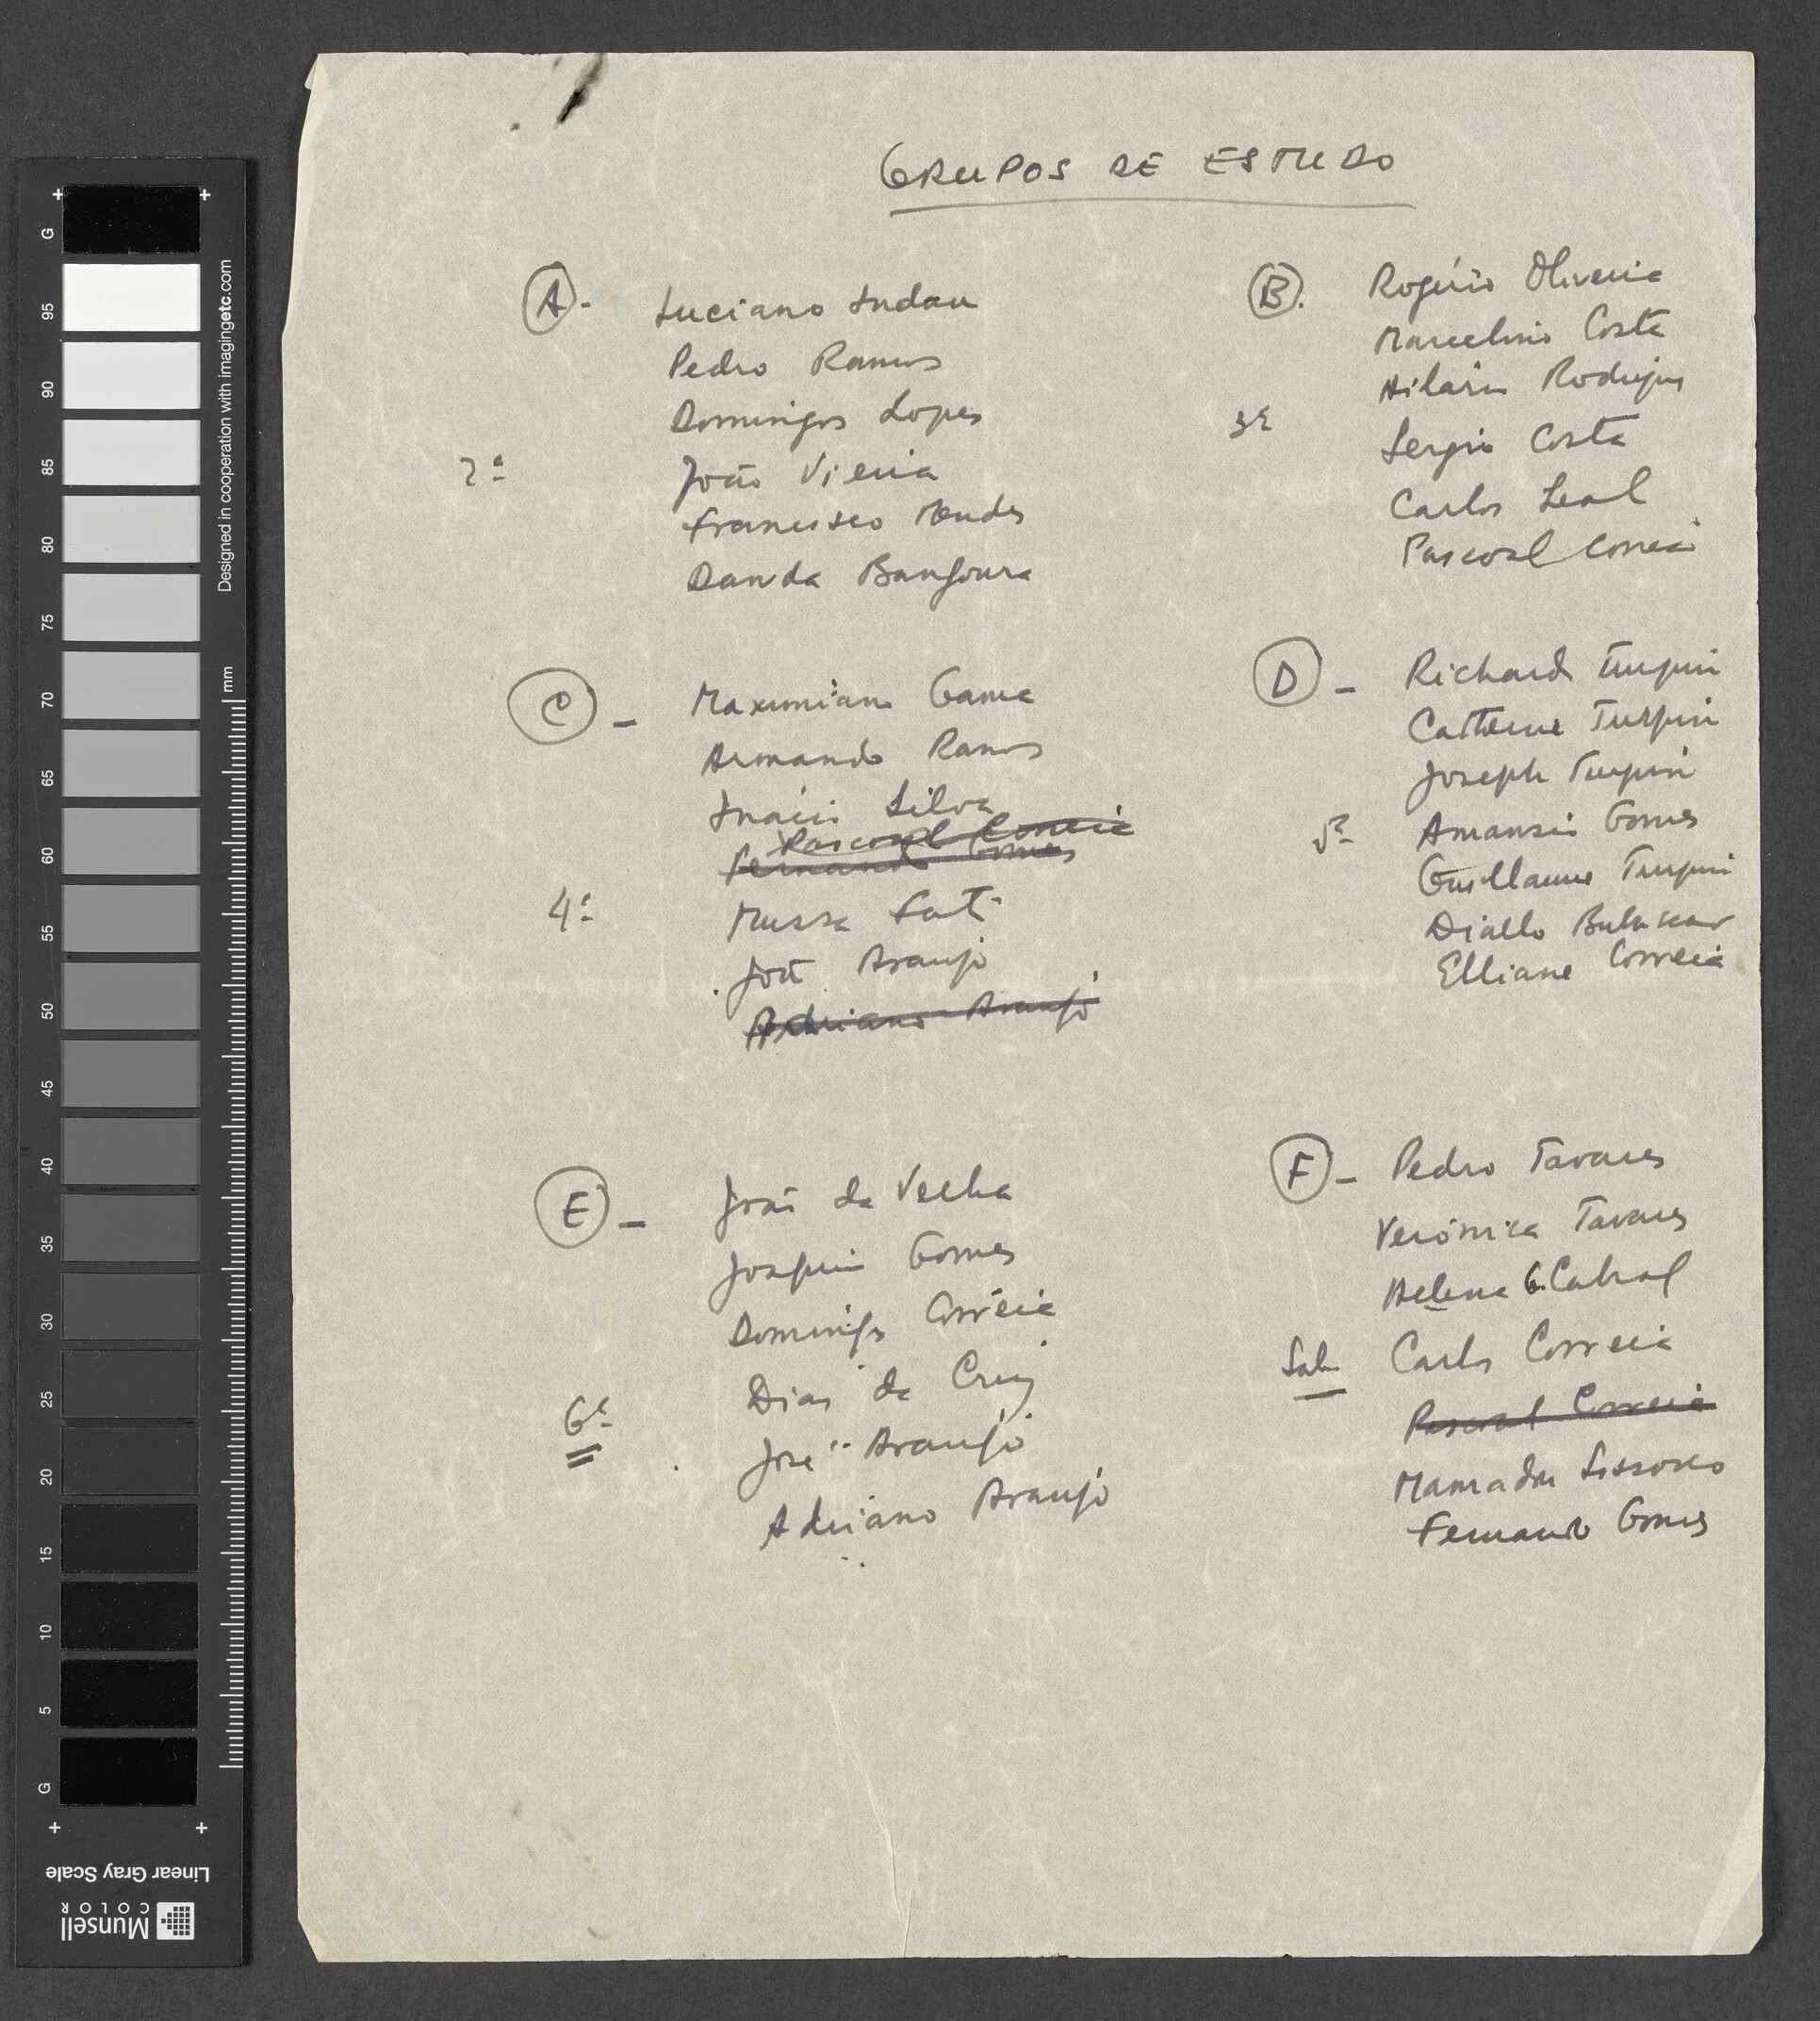 GRUPOS DE ESTUDO
A - Luciano Indau
Pedro Ramos
Domingos Lopes
2ª João Vieira
Francisco Mendes
Danda Bangoura
B. Rogério Oliveira
Marcelino Costa
Hilário Rodrigues
3ª
Sergio Costa
Carlos Leal
Pascoal Correia
C - Maximiano Gama
Armando Ramos
Inácio Silva
Pascoal Correia
Fernando Gomes
4ª Mussa Fati
João Araujo
Adriano Araujo
D - Richard Turpin
Catherine Turpin
Joseph Turpin
5ª Amansio Gomes
Guillaume Turpin
Diallo
Elliane Correia
E - João da Veiha
Joaquim Gomes
Domingos Correia
Dias da Cruz
6ª
José Araujo
Adriano Araujo
F - Pedro Tavares
Verónica Tavares
Helena G. Cabral
Sab. Carlos Correia
Pascoal Correia
Mamadu Sissoko
Fernando Gomes
G 95 90 85 80 75 70 65 60 55 50 45 40 35 30 25 20 15 10 5 G
Designed in cooperation with imagingetc.com
mm
Linear Gray Scale
Munsell
COLOR